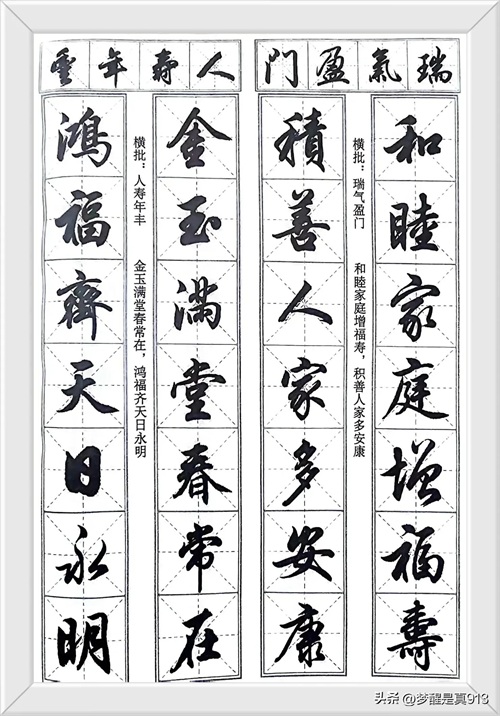 瑞氣盈門
和睦家庭增福壽
積善人家多安康
横批：瑞气盈门
和睦家庭增福寿，积善人家多安康
人壽年豐
金玉满堂春常在
鴻福齊天日永明
横批：人寿年丰
金玉满堂春常在，鸿福齐天日永明
头条 @梦醒是真913